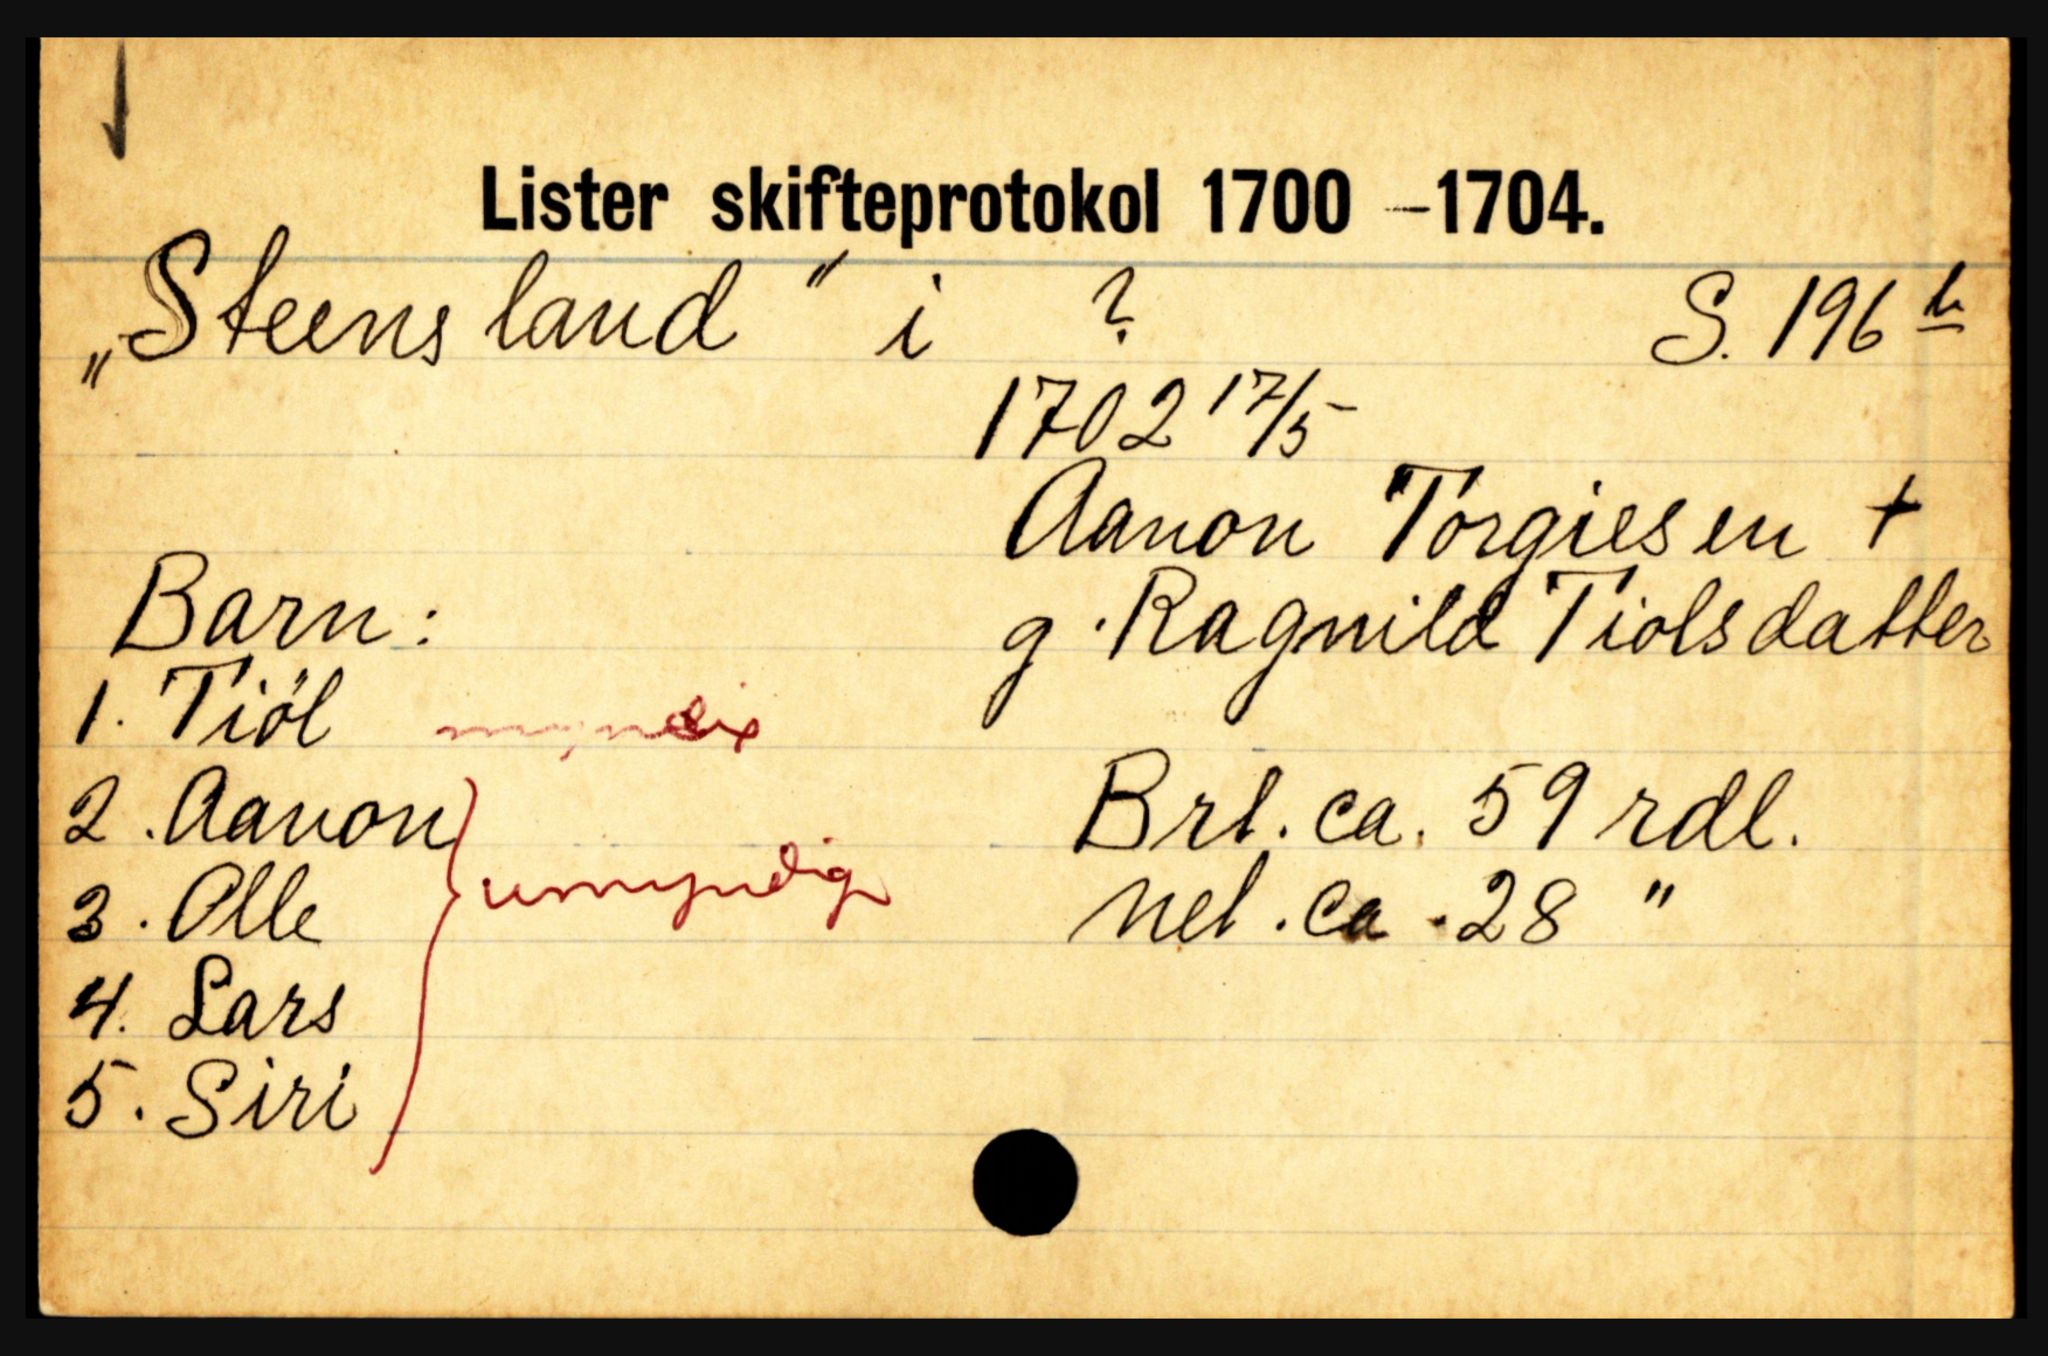 Lister skifteprotokol 1700 –1704.
„Steensland" i ? S. 196 b
1702 17/5
Aanon Torgiesen +
g. Ragnild Tiolsdatter
Barn:
1. Tiöl myndig
2. Aanon
3. Olle
4. Lars
5. Siri
umyndig
Brt. ca. 59 rdl.
net. ca. 28 "